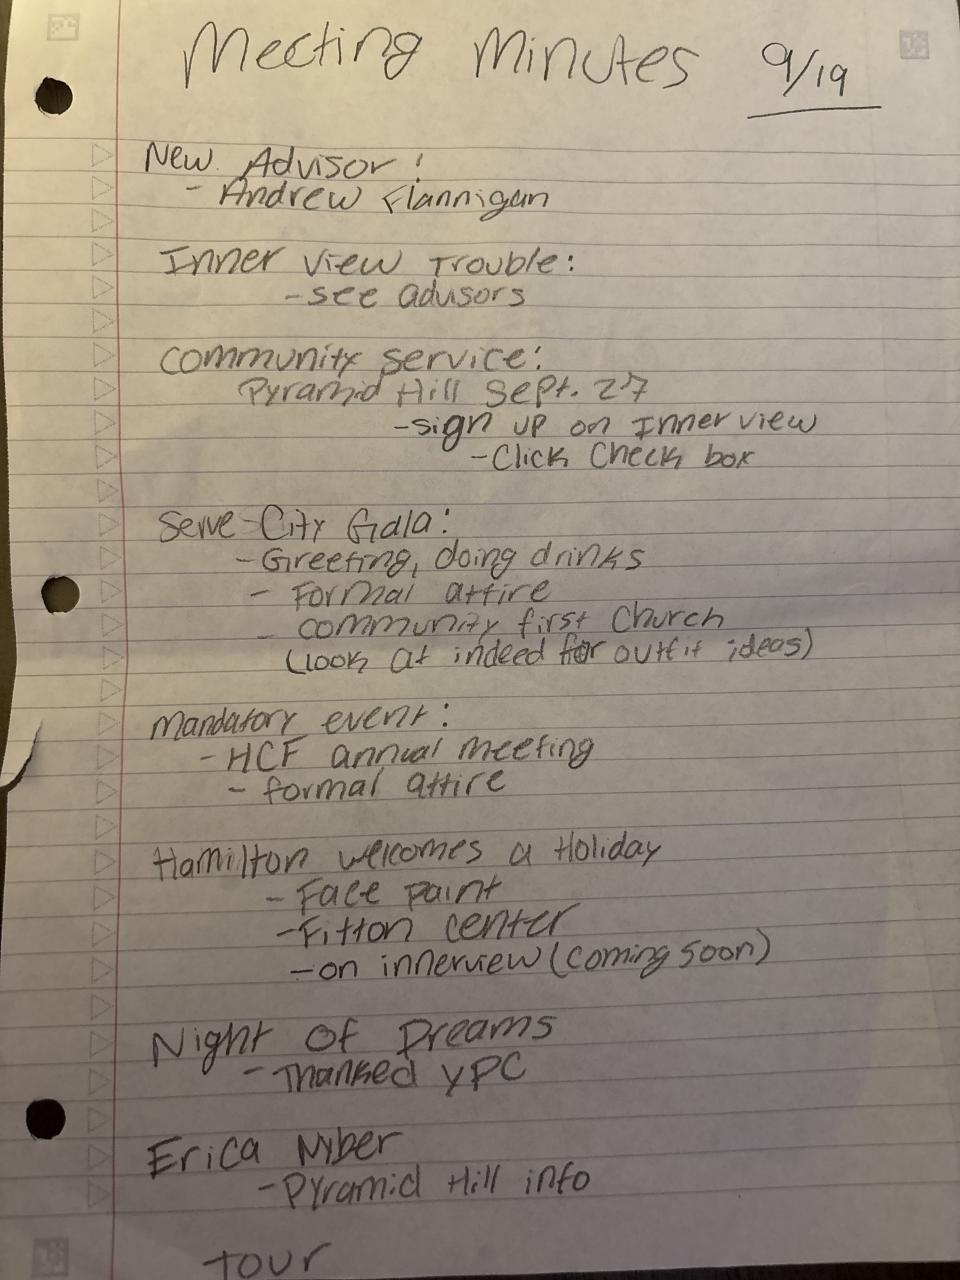 Meeting Minutes 9/19
New Advisor!
- Andrew Flannigan
Inner View Trouble:
- see advisors
Community Service:
Pyramid Hill Sept. 27
- sign up on Inner view
- Click Check box
Serve-City Gala:
- Greeting, doing drinks
- Formal attire
- community first Church
(look at indeed for outfit ideas)
Mandatory event:
- HCF annual meeting
- formal attire
Hamilton welcomes a Holiday
- Face paint
- Fitton center
- on innerview (coming soon)
Night Of Dreams
- Thanked YPC
Erica Nyber
- Pyramid Hill info
Tour